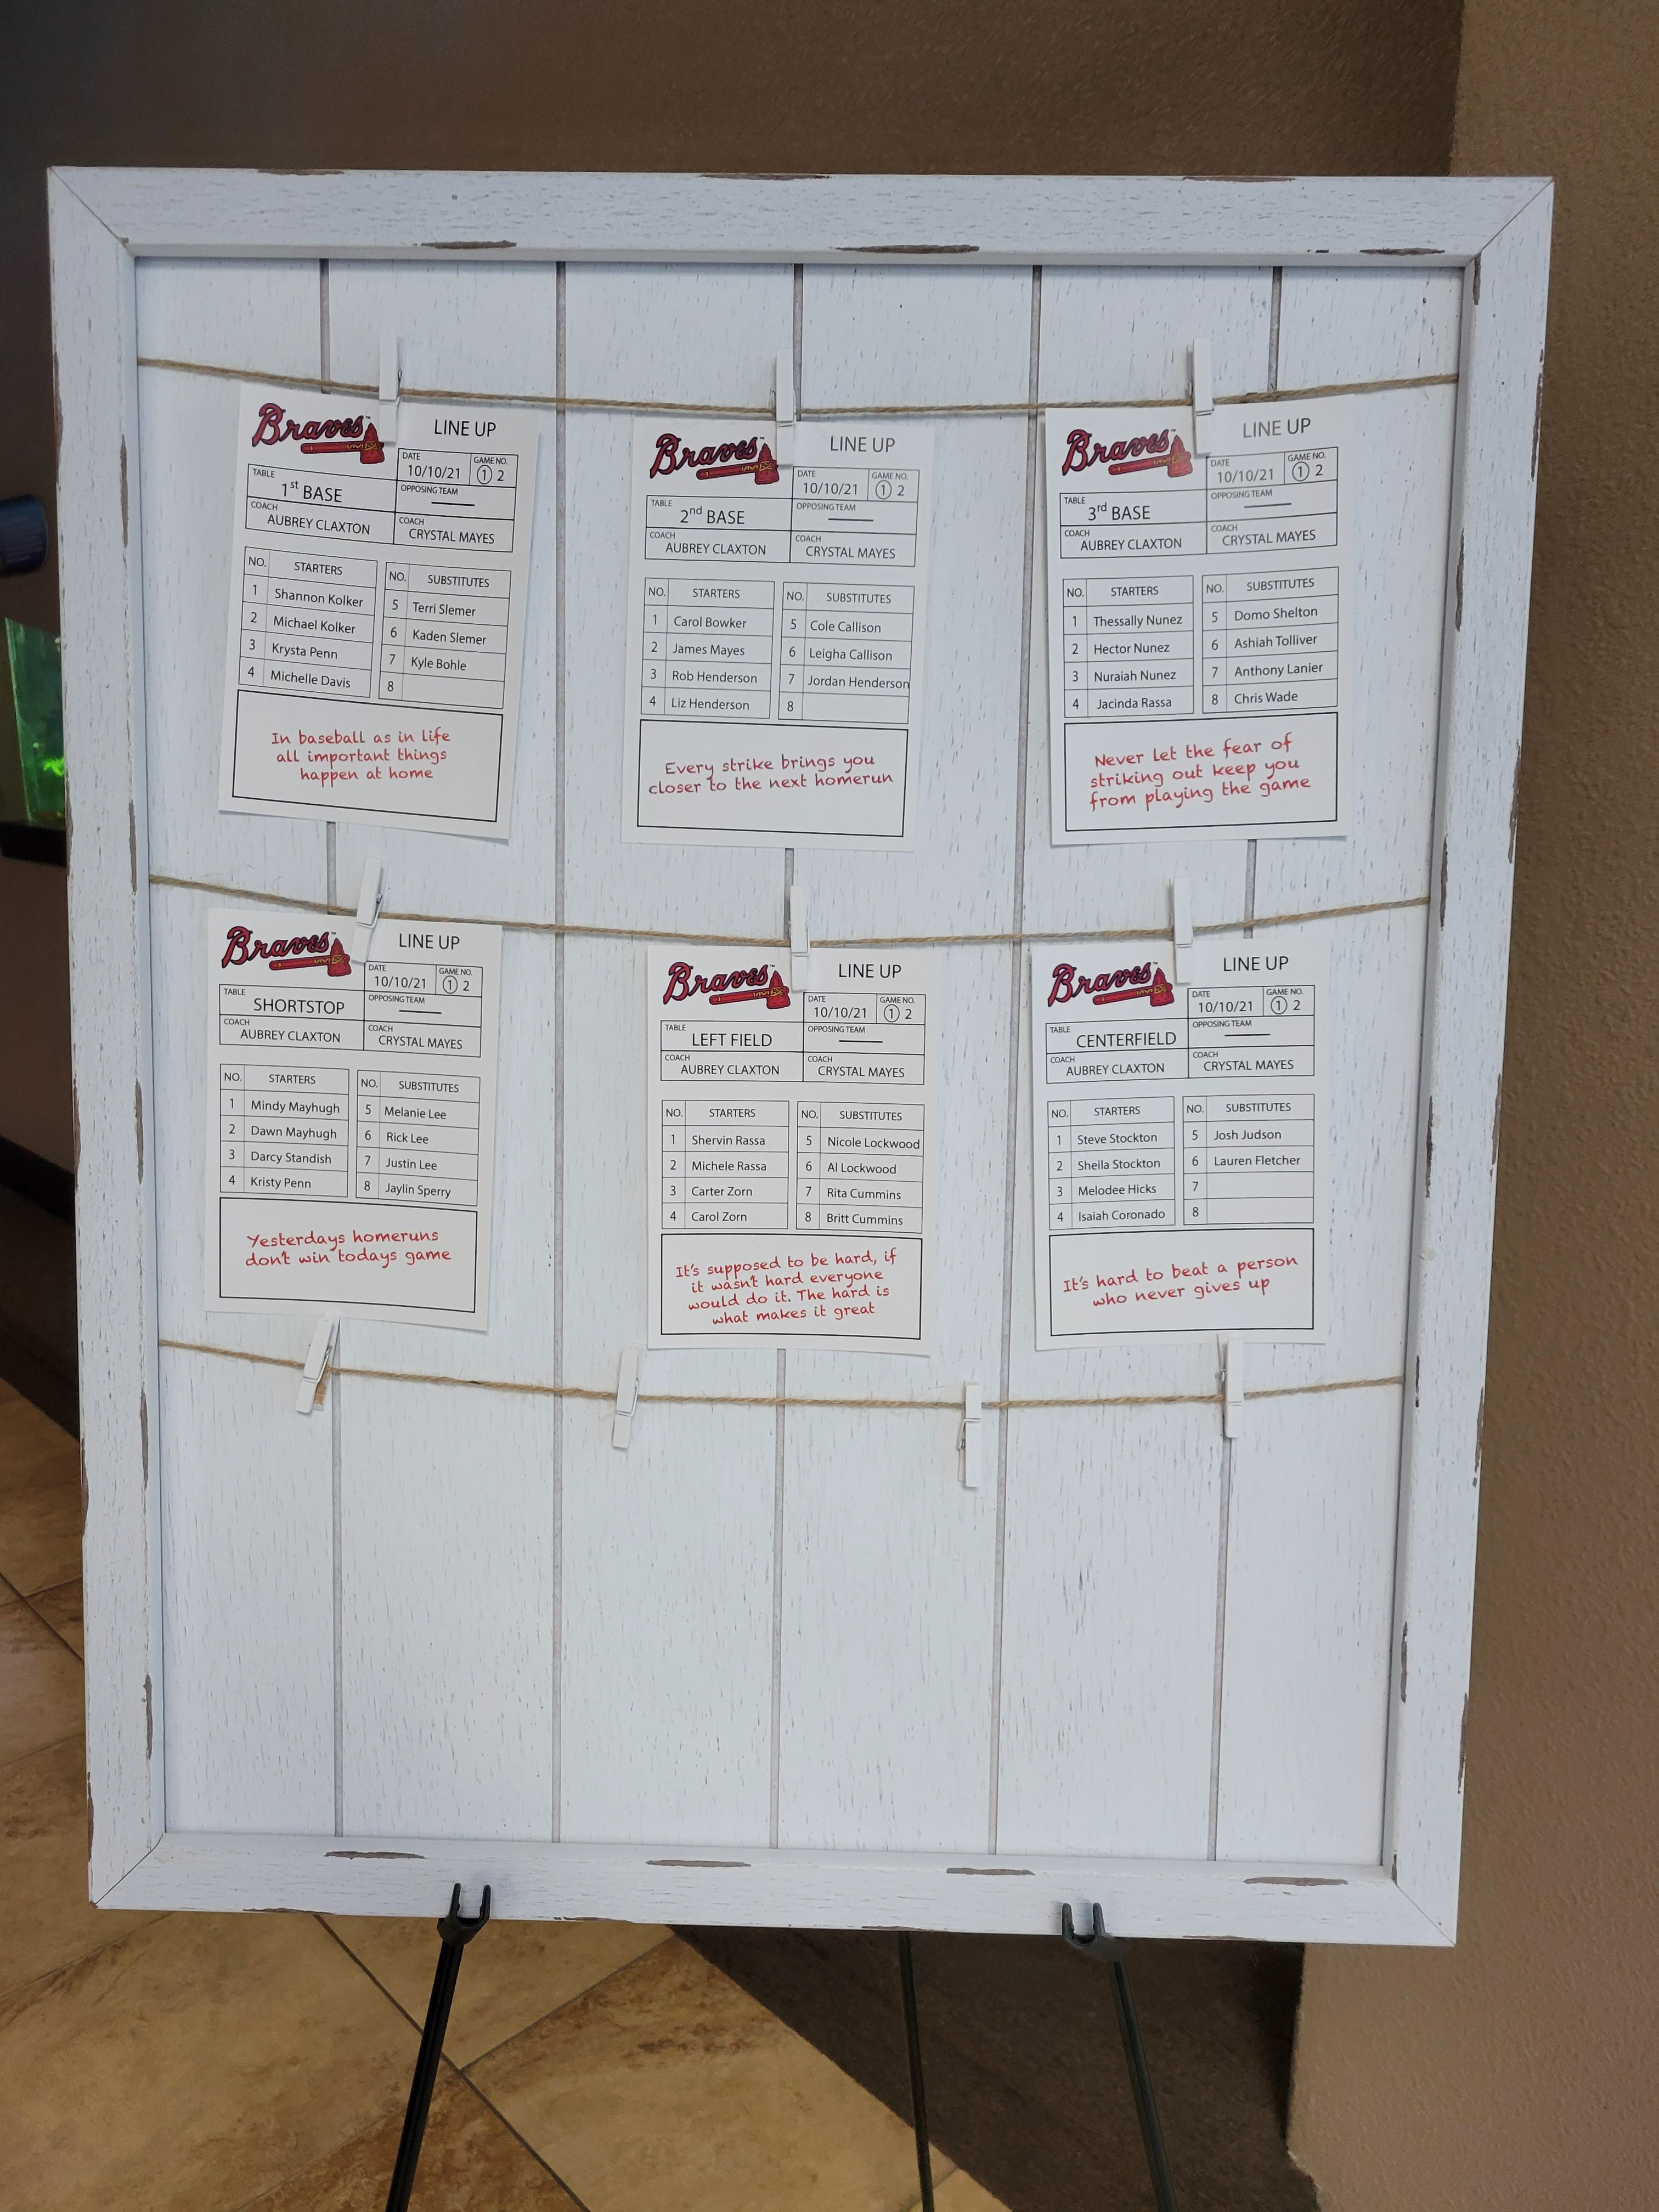 Braves™
LINE UP
DATE
10/10/21
GAME NO.
1 2
TABLE
1st BASE
OPPOSING TEAM
COACH
AUBREY CLAXTON
COACH
CRYSTAL MAYES
NO. STARTERS
1 Shannon Kolker
2 Michael Kolker
3 Krysta Penn
4 Michelle Davis
NO. SUBSTITUTES
5 Terri Slemer
6 Kaden Slemer
7 Kyle Bohle
8
In baseball as in life
all important things
happen at home
Braves™
LINE UP
DATE
10/10/21
GAME NO.
1 2
TABLE
2nd BASE
OPPOSING TEAM
COACH
AUBREY CLAXTON
COACH
CRYSTAL MAYES
NO. STARTERS
1 Carol Bowker
2 James Mayes
3 Rob Henderson
4 Liz Henderson
NO. SUBSTITUTES
5 Cole Callison
6 Leigha Callison
7 Jordan Henderson
8
Every strike brings you
closer to the next homerun
Braves™
LINE UP
DATE
10/10/21
GAME NO.
1 2
TABLE
3rd BASE
OPPOSING TEAM
COACH
AUBREY CLAXTON
COACH
CRYSTAL MAYES
NO. STARTERS
1 Thessally Nunez
2 Hector Nunez
3 Nuraiah Nunez
4 Jacinda Rassa
NO. SUBSTITUTES
5 Domo Shelton
6 Ashiah Tolliver
7 Anthony Lanier
8 Chris Wade
Never let the fear of
striking out keep you
from playing the game
Braves™
LINE UP
DATE
10/10/21
GAME NO.
1 2
TABLE
SHORTSTOP
OPPOSING TEAM
COACH
AUBREY CLAXTON
COACH
CRYSTAL MAYES
NO. STARTERS
1 Mindy Mayhugh
2 Dawn Mayhugh
3 Darcy Standish
4 Kristy Penn
NO. SUBSTITUTES
5 Melanie Lee
6 Rick Lee
7 Justin Lee
8 Jaylin Sperry
Yesterdays homeruns
don't win todays game
Braves™
LINE UP
DATE
10/10/21
GAME NO.
1 2
TABLE
LEFT FIELD
OPPOSING TEAM
COACH
AUBREY CLAXTON
COACH
CRYSTAL MAYES
NO. STARTERS
1 Shervin Rassa
2 Michele Rassa
3 Carter Zorn
4 Carol Zorn
NO. SUBSTITUTES
5 Nicole Lockwood
6 Al Lockwood
7 Rita Cummins
8 Britt Cummins
It's supposed to be hard, if
it wasn't hard everyone
would do it. The hard is
what makes it great
Braves™
LINE UP
DATE
10/10/21
GAME NO.
1 2
TABLE
CENTERFIELD
OPPOSING TEAM
COACH
AUBREY CLAXTON
COACH
CRYSTAL MAYES
NO. STARTERS
1 Steve Stockton
2 Sheila Stockton
3 Melodee Hicks
4 Isaiah Coronado
NO. SUBSTITUTES
5 Josh Judson
6 Lauren Fletcher
7
8
It's hard to beat a person
who never gives up